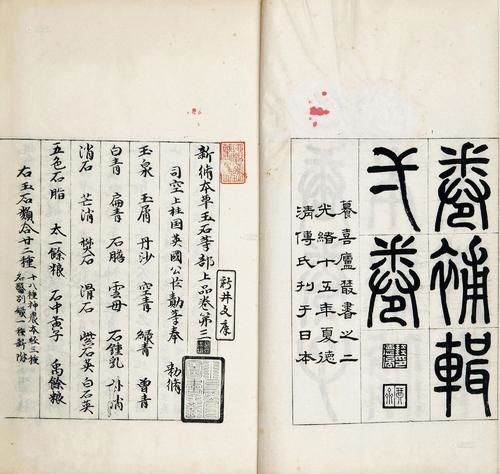 卷補輯
弌卷
籑喜廬叢書之二
光緒十五年夏德
清傅氏刊于日本
新脩本草玉石等部上品卷第三
新井文庫
司空上柱国英國公臣勣等奉 勅脩
玉泉 玉屑 丹沙 空青 緑青 曾青
白青 扁青 石膽 雲母 石鍾乳 朴消
消石 芒消 礬石 滑石 紫石英 白石英
五色石脂 太一餘粮 石中黄子 禹餘粮
右玉石類合廿二種 十八種神農本経三種
名醫別録一種新附